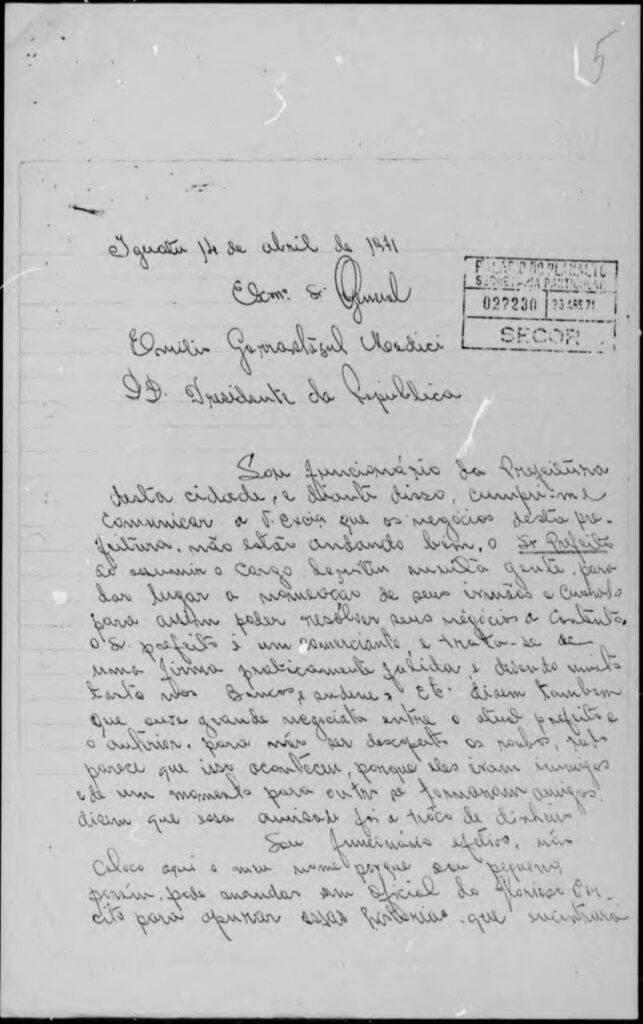 5
Iguatu 14 de abril de 1971
PALÁCIO DO PLANALTO
SECRETARIA PARTICULAR
027230 23 ABR 71
SECOR
Exmº Sr General
Emilio Garrastazul Medici
DD. Presidente da Republica
Sou funcionário da Prefeitura
desta cidade, e diante disso, cumpri-me
comunicar a V. Excia que os negócios desta pre-
feitura, não estão andando bem, o Sr Prefeito
ao assumir o cargo demitiu muita gente, para
dar lugar a nomeação de seus irmãos e cunhado
para assim poder resolver seus negócios a contento.
O Sr. prefeito é um comerciante, e trata-se de
uma firma praticamente falida, e devendo muito
tanto nos Bancos, e sudene, Etc. dizem tambem
que ouve grande negociata entre o atual prefeito e
o anterior, para não ser descoberto os roubos, tudo
parece que isso aconteceu, porque eles iram inimigos
e de um momento para outro se formaram amigos.
dizem que essa amisade foi a troco de dinheiro
Sou funcionário efetivo, não
coloco aqui o meu nome porque sou pequeno,
porém, pode mandar um Oficial do glorioso Exer-
cito para apurar essas histórias que encontrará